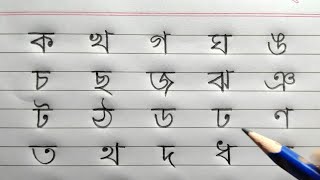 ক খ গ ঘ ঙ
চ ছ জ ঝ ঞ
ট ঠ ড ঢ ণ
ত থ দ ধ